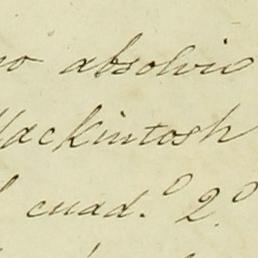 no absolvió
Mackintosh
l cuad.º 2.º